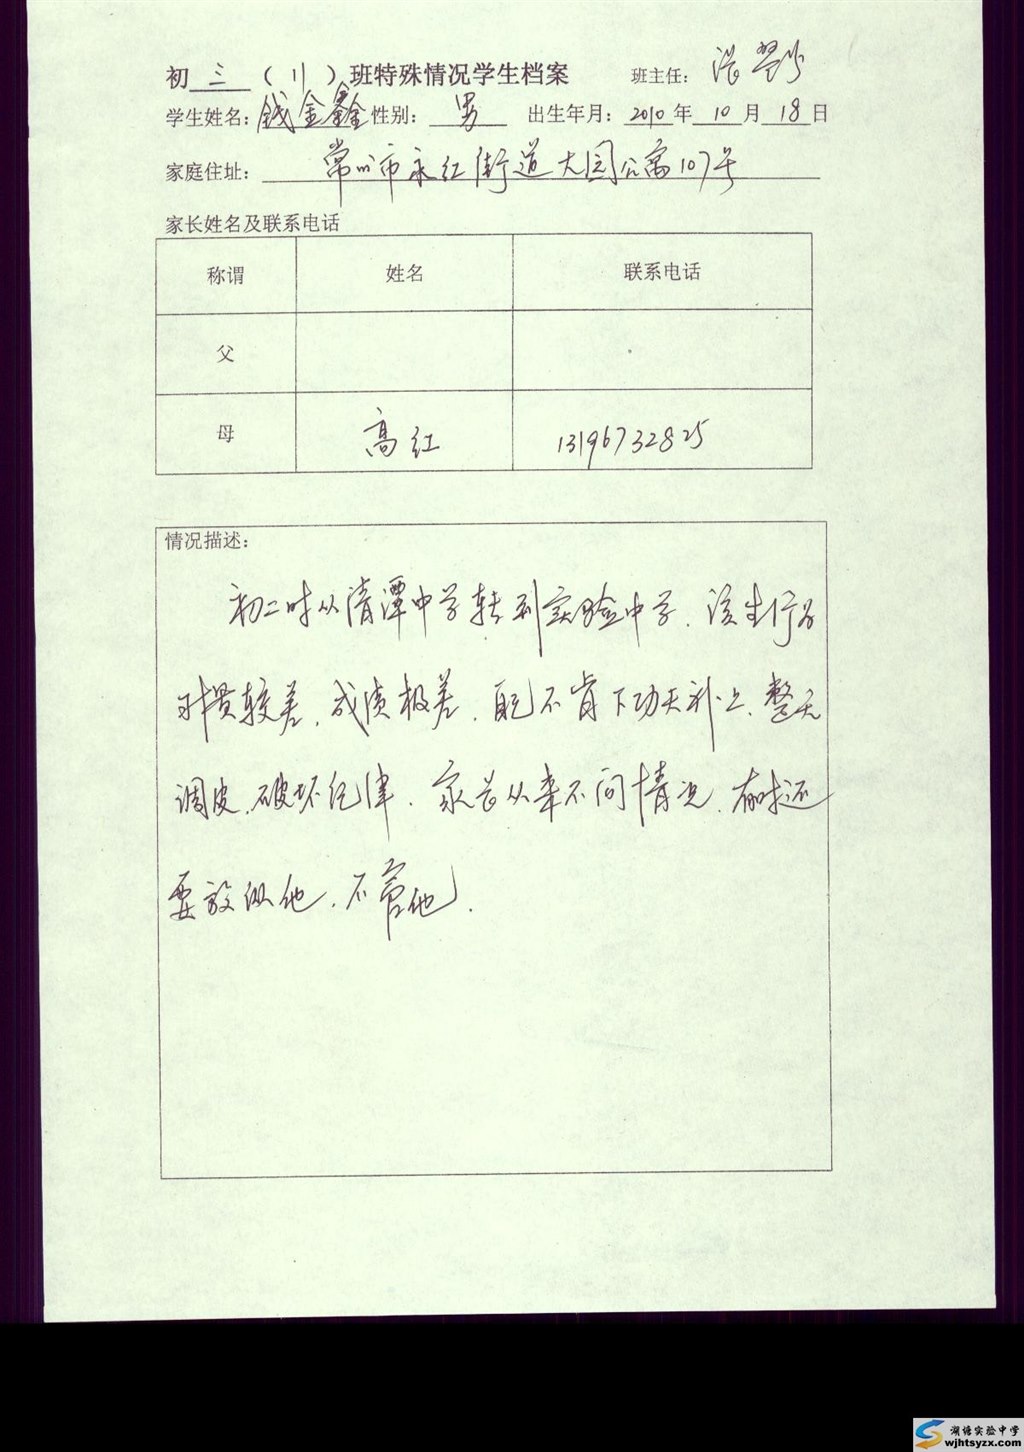 初 三 （ 11 ）班特殊情况学生档案 班主任：
学生姓名：钱金鑫 性别： 男 出生年月：2010 年 10 月 18 日
家庭住址： 常州市永红街道大园公寓107号
家长姓名及联系电话
称谓 姓名 联系电话
父
母 高红 13196732825
情况描述：
初二时从清潭中学转到实验中学．该生行为
习惯较差．成绩极差．自己不肯下功夫补上、整天
调皮．破坏纪律．家长从来不问情况．有时还
要放纵他．不管他．
湖塘实验中学
wjhtsyzx.com